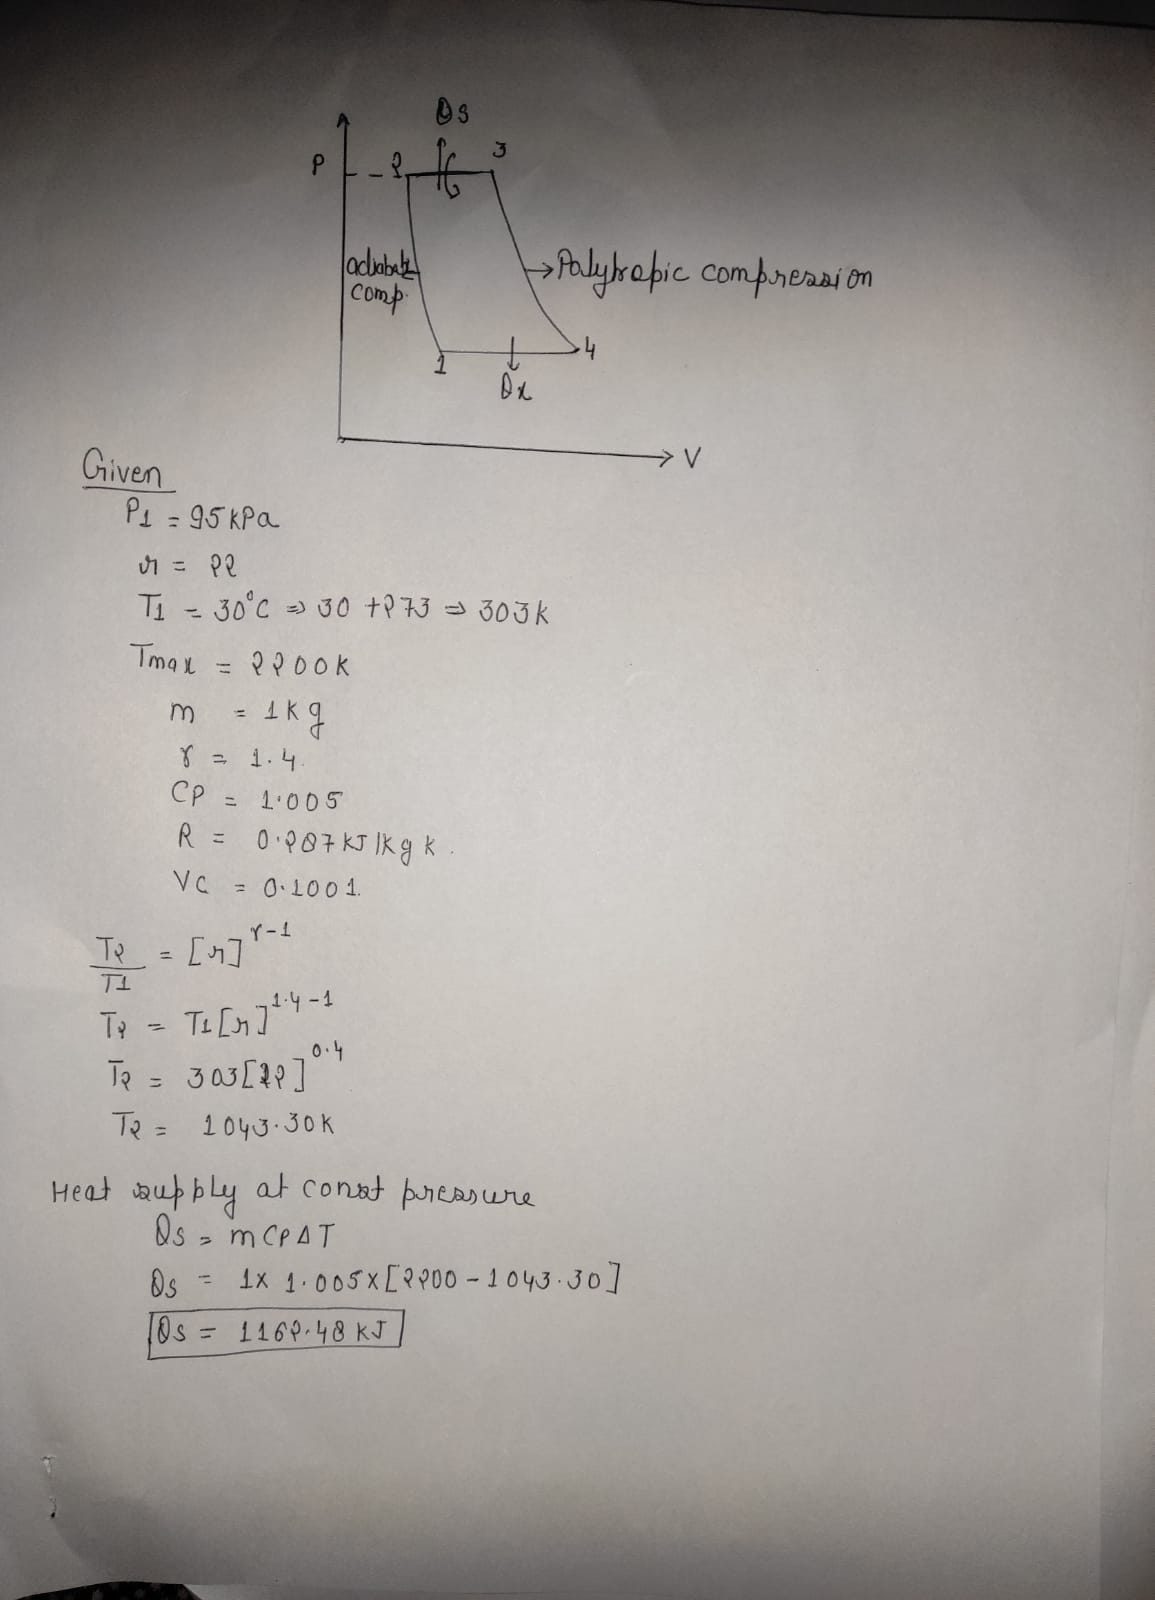 Qs
P 2 3
adiabatic → Polytropic compression
comp.
1 4
Qx
V
Given
P1 = 95 kPa
r = 22
T1 = 30°C ⇒ 30 + 273 ⇒ 303k
Tmax = 2200k
m = 1kg
γ = 1.4
CP = 1.005
R = 0.287 KJ/kg k.
VC = 0.1001.
T2/T1 = [r]^γ-1
T2 = T1[r]^1.4-1
T2 = 303[22]^0.4
T2 = 1043.30k
Heat supply at const pressure
Qs = mCPΔT
Qs = 1x 1.005x[2200 - 1043.30]
Qs = 1162.48 KJ